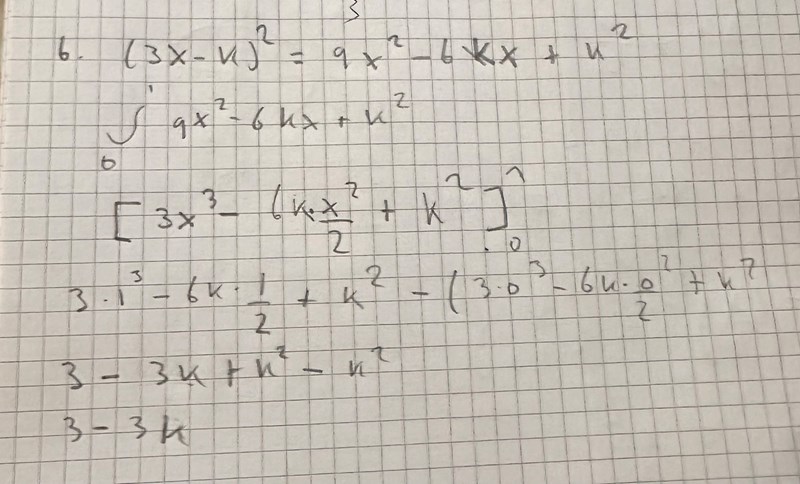 3
6. (3x-k)² = 9x² - 6kx + k²
∫₀¹ 9x² - 6kx + k²
[3x³ - 6k·x²/2 + k²]₀¹
3·1³ - 6k·1/2 + k² - (3·0³ - 6k·0²/2 + k²
3 - 3k + k² - k²
3 - 3k